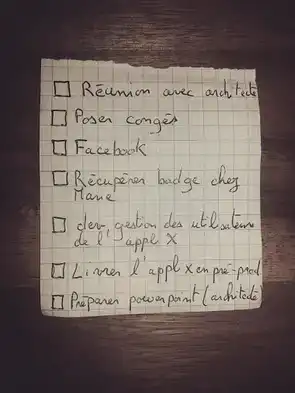 Réunion avec architecte
Poser congés
Facebook
Récupérer badge chez
Marie
dev, gestion des utilisateurs
de l'appl X
Livrer l'appl X en pré-prod
Préparer powerpoint (architecte)